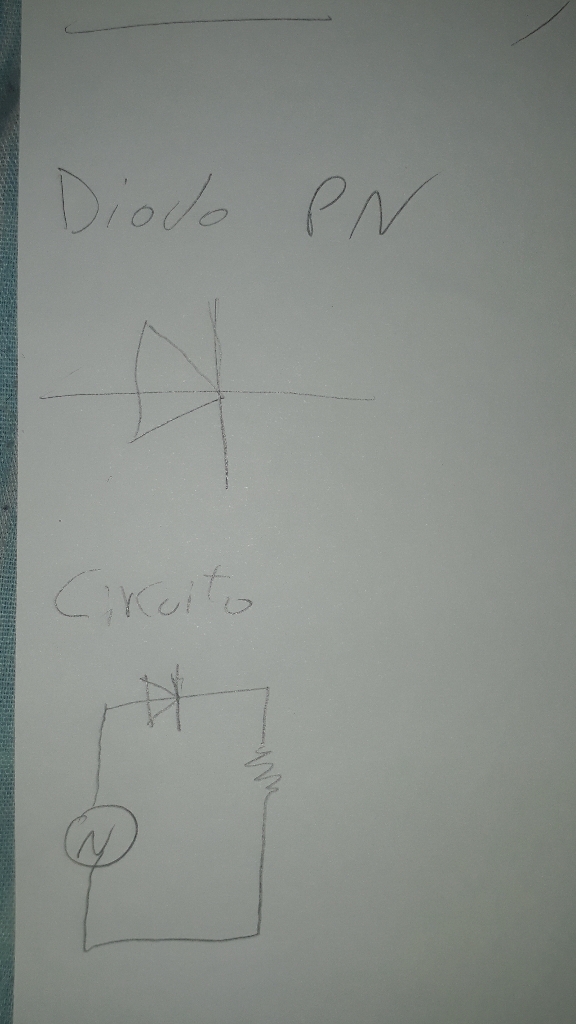 Diodo PN
Circuito